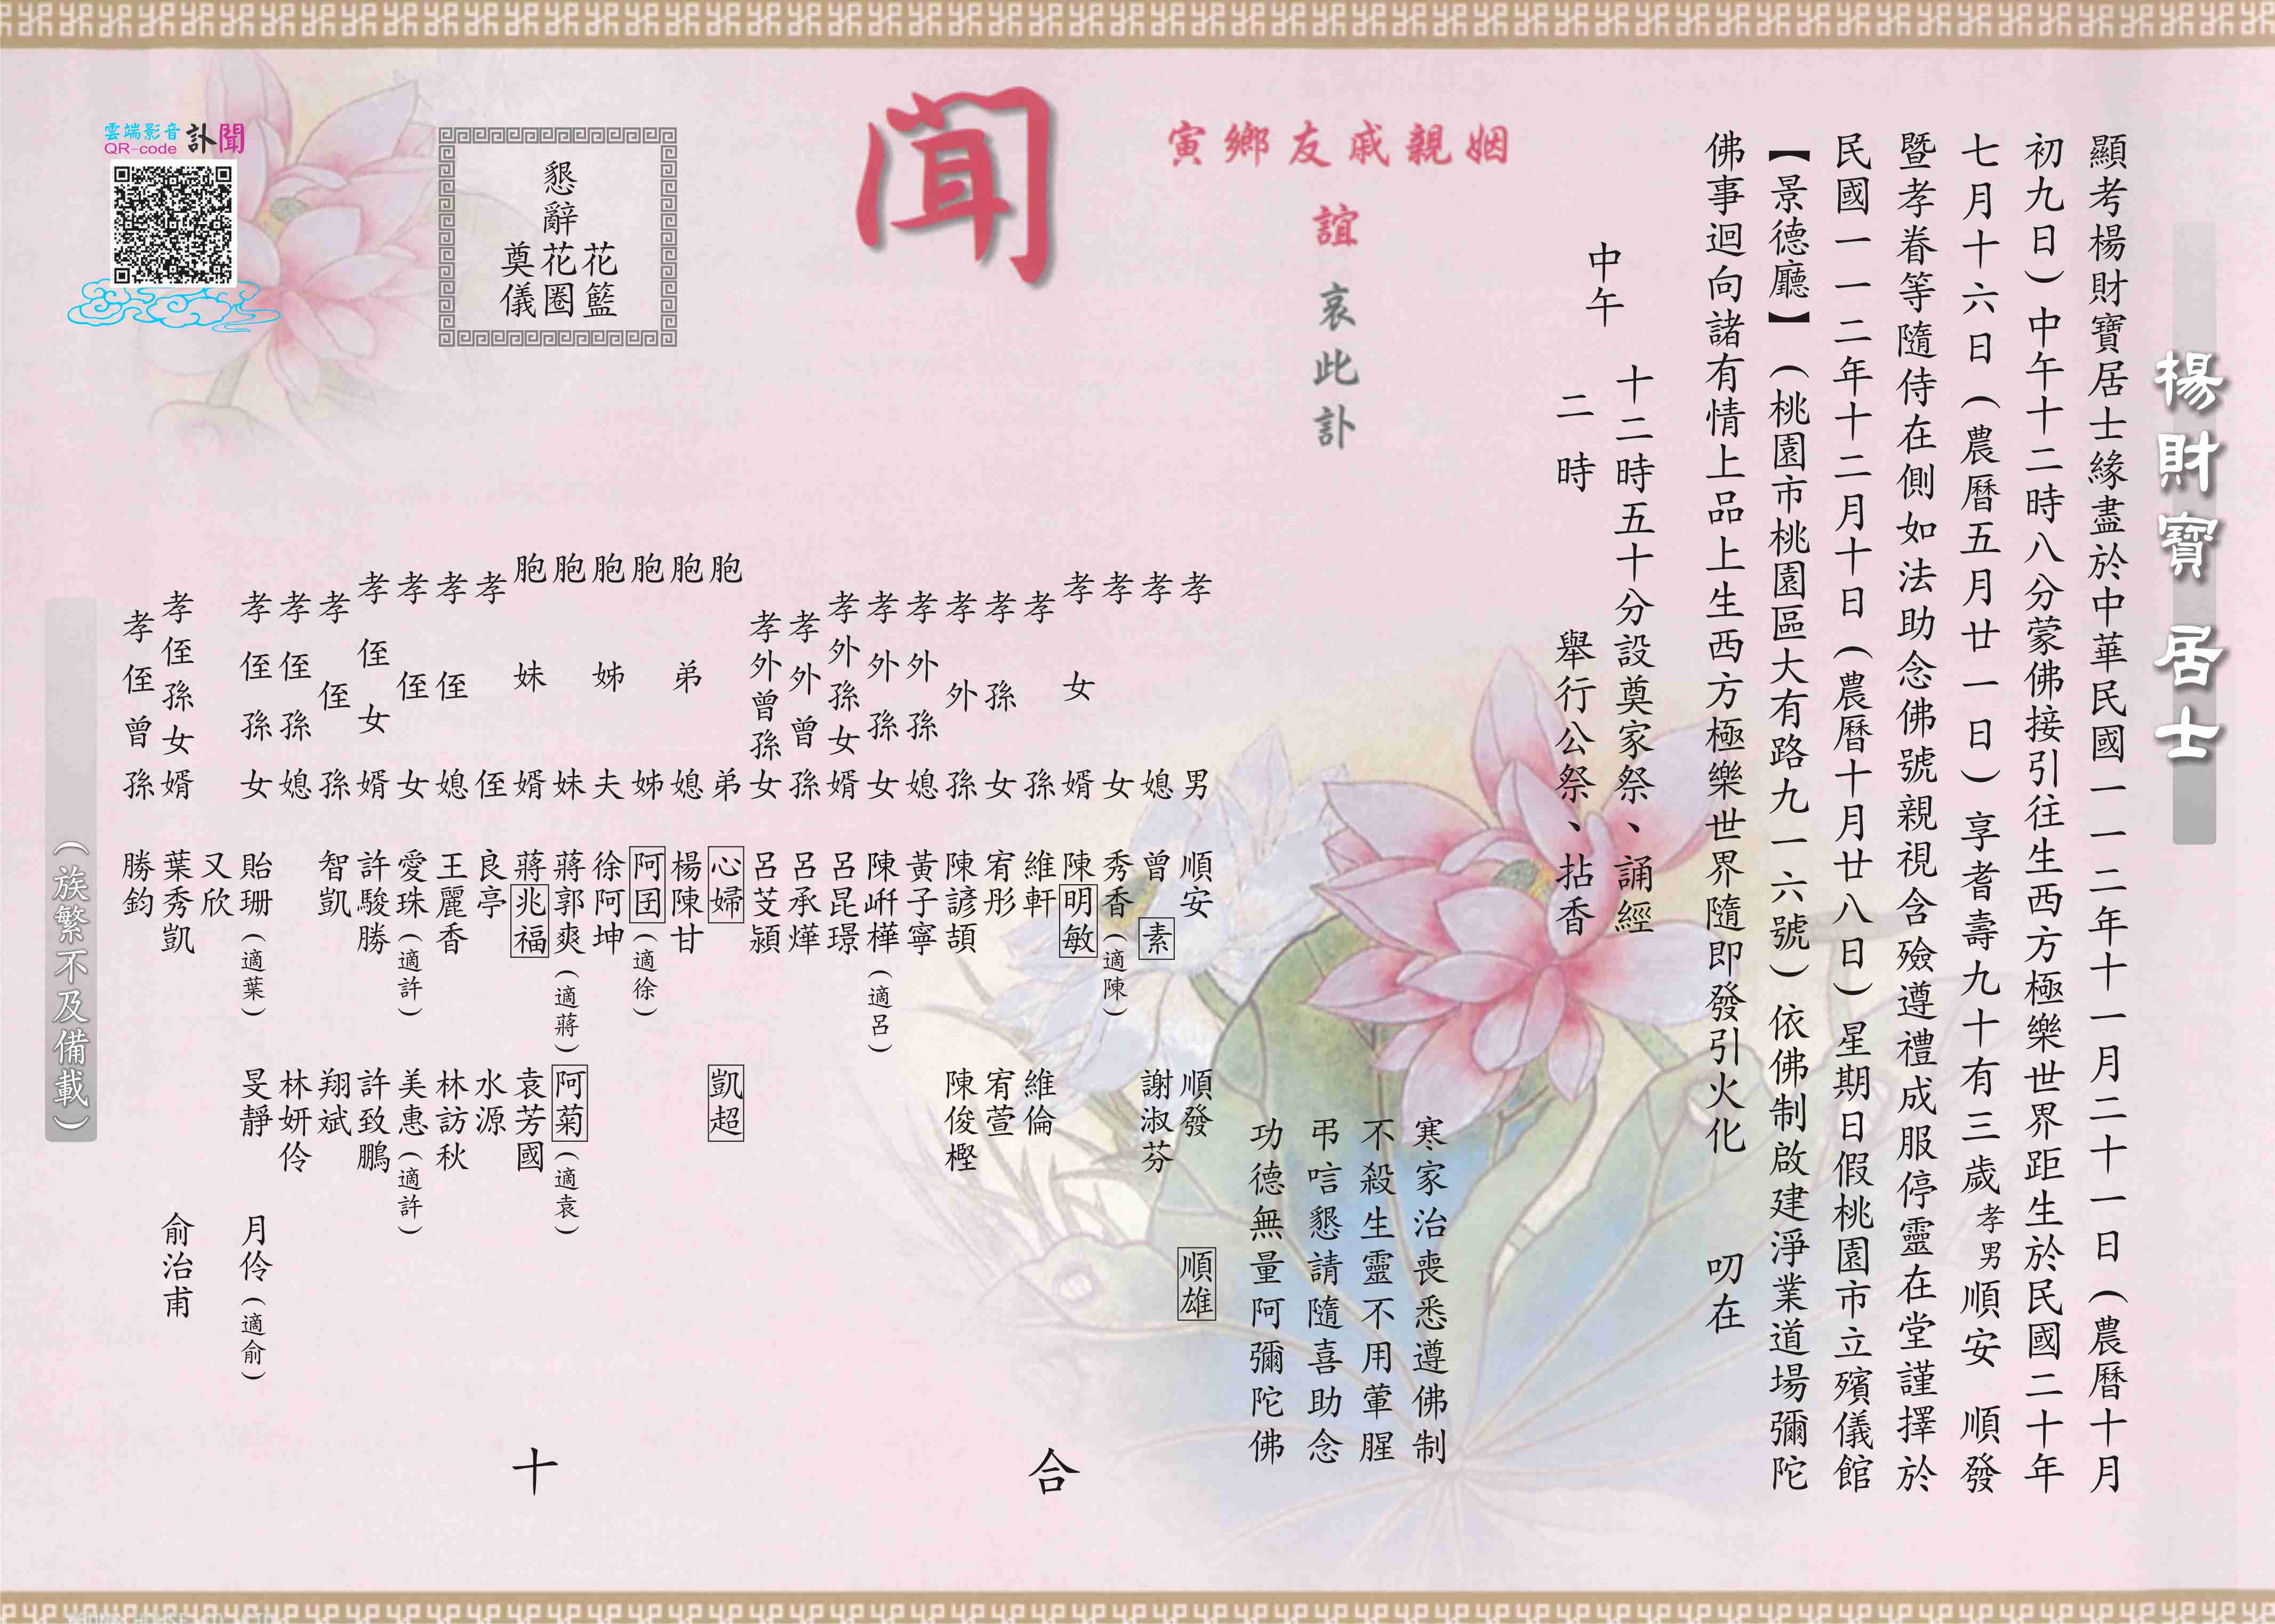 楊財寶 居士
顯考楊財寶居士緣盡於中華民國一一二年十一月二十一日(農曆十月
初九日)中午十二時八分蒙佛接引往生西方極樂世界距生於民國二十年
七月十六日(農曆五月廿一日)享耆壽九十有三歲孝男順安 順發
暨孝眷等隨侍在側如法助念佛號親視含殮遵禮成服停靈在堂謹擇於
民國一一二年十二月十日(農曆十月廿八日)星期日假桃園市立殯儀館
【景德廳】(桃園市桃園區大有路九一六號)依佛制啟建淨業道場彌陀
佛事迴向諸有情上品上生西方極樂世界隨即發引火化 叨在
中午 十二時五十分設奠家祭、誦經
二時 舉行公祭、拈香
姻親戚友鄉寅
誼
哀此訃
聞
寒家治喪悉遵佛制
不殺生靈不用葷腥
弔唁懇請隨喜助念
功德無量阿彌陀佛
孝男 順安 順發 順雄
孝媳 曾素 謝淑芬
孝女 秀香(適陳)
孝女婿 陳明敏
孝孫 維軒 維倫
孝孫女 宥彤 宥萱
孝外孫 陳諺頡 陳俊樫
孝外孫媳 黃子寧
孝外孫女 陳㟁樺(適呂)
孝外孫女婿 呂昆璟
孝外曾孫 呂承燁
孝外曾孫女 呂芠潁
胞弟 心婦 凱超
胞弟媳 楊陳甘
胞姊 阿囯(適徐)
胞姊夫 徐阿坤
胞妹 蔣郭爽(適蔣) 阿菊(適袁)
胞妹婿 蔣兆福 袁芳國
孝侄 良亭 水源
孝侄媳 王麗香 林訪秋
孝侄女 愛珠(適許) 美惠(適許)
孝侄女婿 許駿勝 許致鵬
孝侄孫 智凱 翔斌
孝侄孫媳 林妍伶
孝侄孫女 貽珊(適葉) 旻靜 月伶(適俞)
又欣
孝侄孫女婿 葉秀凱 俞治甫
孝侄曾孫 勝鈞
合 十
(族繁不及備載)
懇辭
花籃
花圈
奠儀
雲端影音 訃聞
QR-code